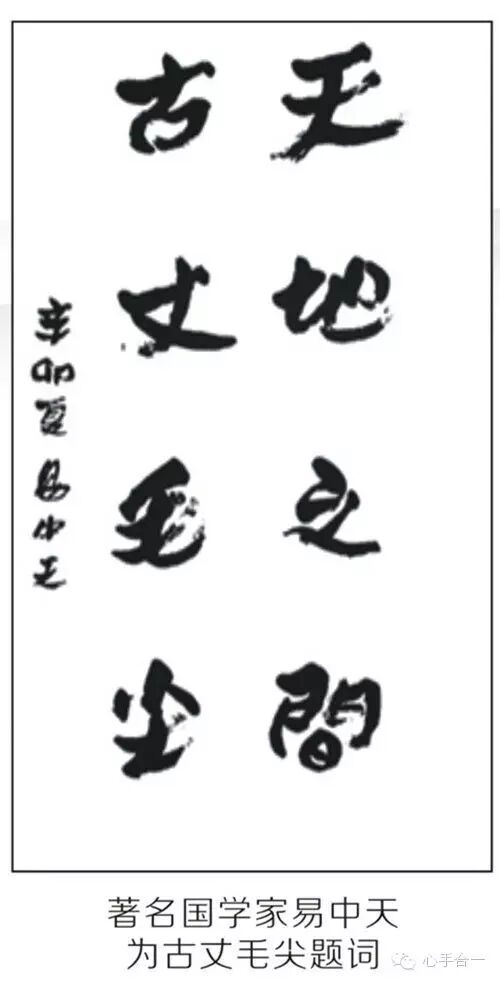 天地之間
古丈毛尖
辛卯夏 易中天
著名国学家易中天
为古丈毛尖题词
心手合一